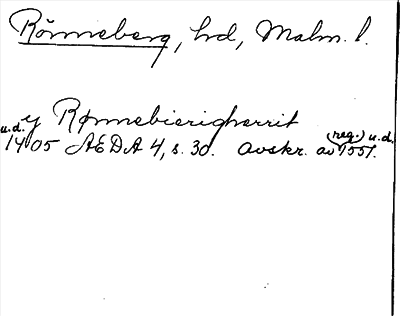 Rönneberg, hd, Malm. l.
y Rønnebierigherrit
u.d. 1405 AEDA 4, s. 30. avskr. av (reg.) u.d. 1551.